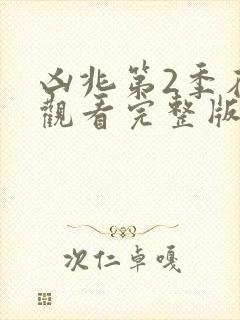 凶兆第2季在
觀看完整版
次仁卓嘎